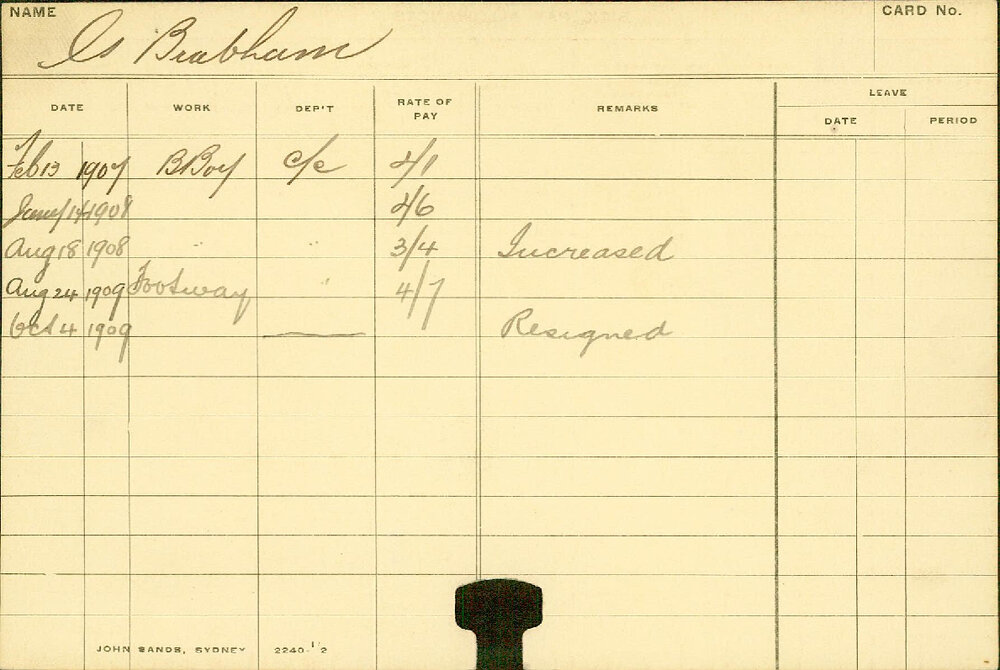 NAME
CARD No.
Brabham
DATE WORK DEP'T RATE OF PAY REMARKS LEAVE
DATE PERIOD
Feb 13 1907 B Boy c/e 2/1
Jany 14 1908 2/6
Aug 18 1908 " " 3/4 Increased
Aug 24 1909 Footway " 4/7
Oct 4 1909 Resigned
JOHN SANDS, SYDNEY 2240-1/2